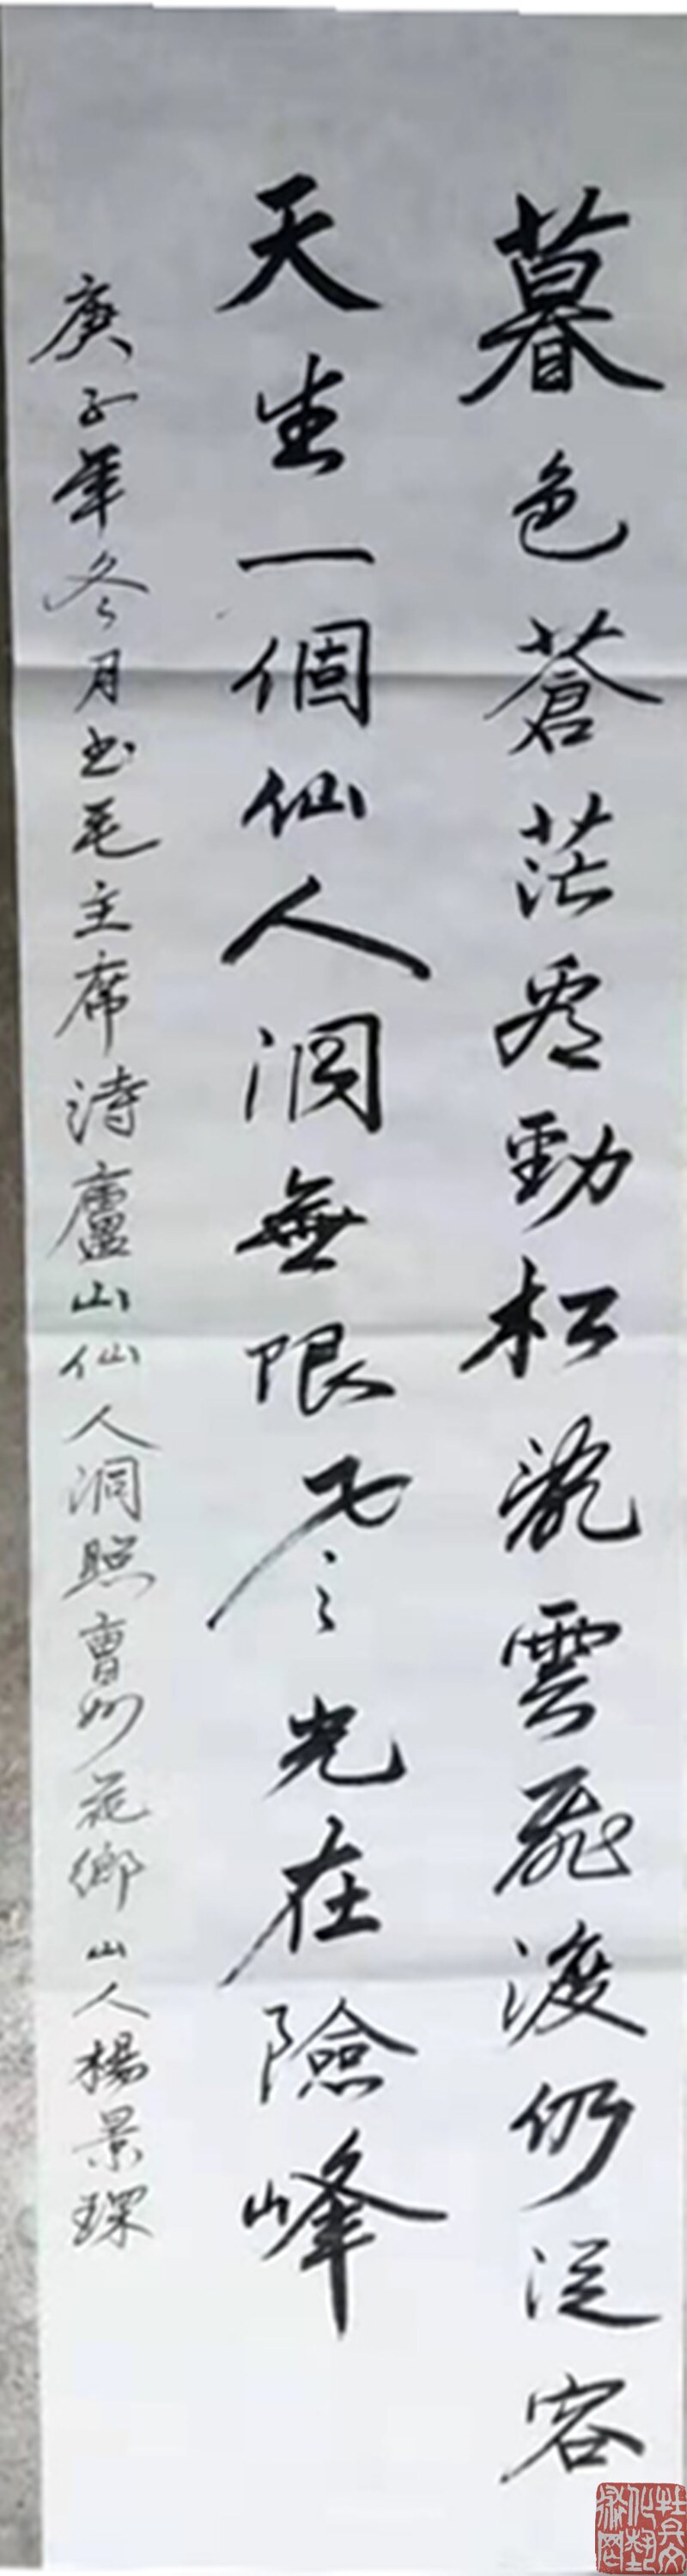 暮色蒼茫看勁松亂雲飛渡仍從容
天生一個仙人洞無限風光在險峰
庚子年冬月书毛主席诗廬山仙人洞照曹州花鄉山人楊景琛